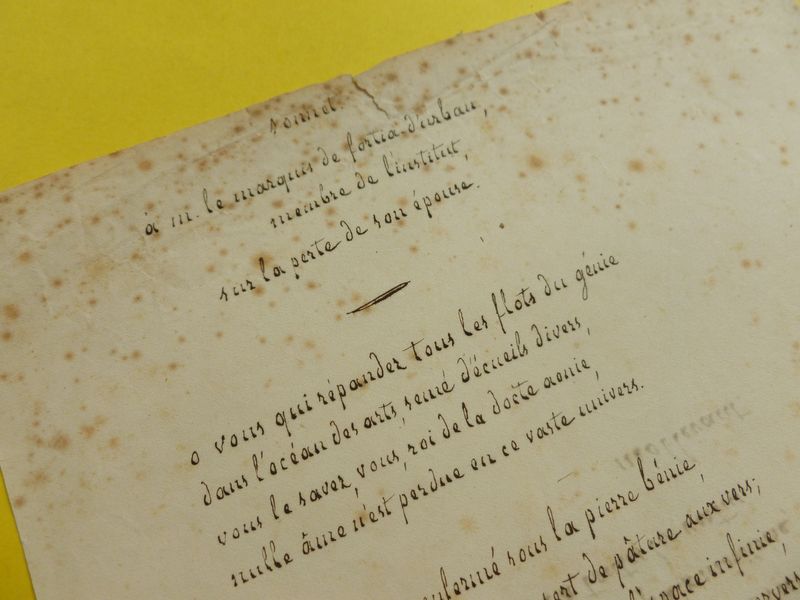 sonnet.
à m. le marquis de fortia d'urban,
membre de l'institut,
sur la perte de son épouse.
o vous qui répandez tous les flots du génie
dans l'océan des arts, semé d'écueils divers,
vous le savez, vous, roi de la docte aonie,
nulle âme n'est perdue en ce vaste univers.
sous la pierre bénie,
de pâture aux vers;
infinie,